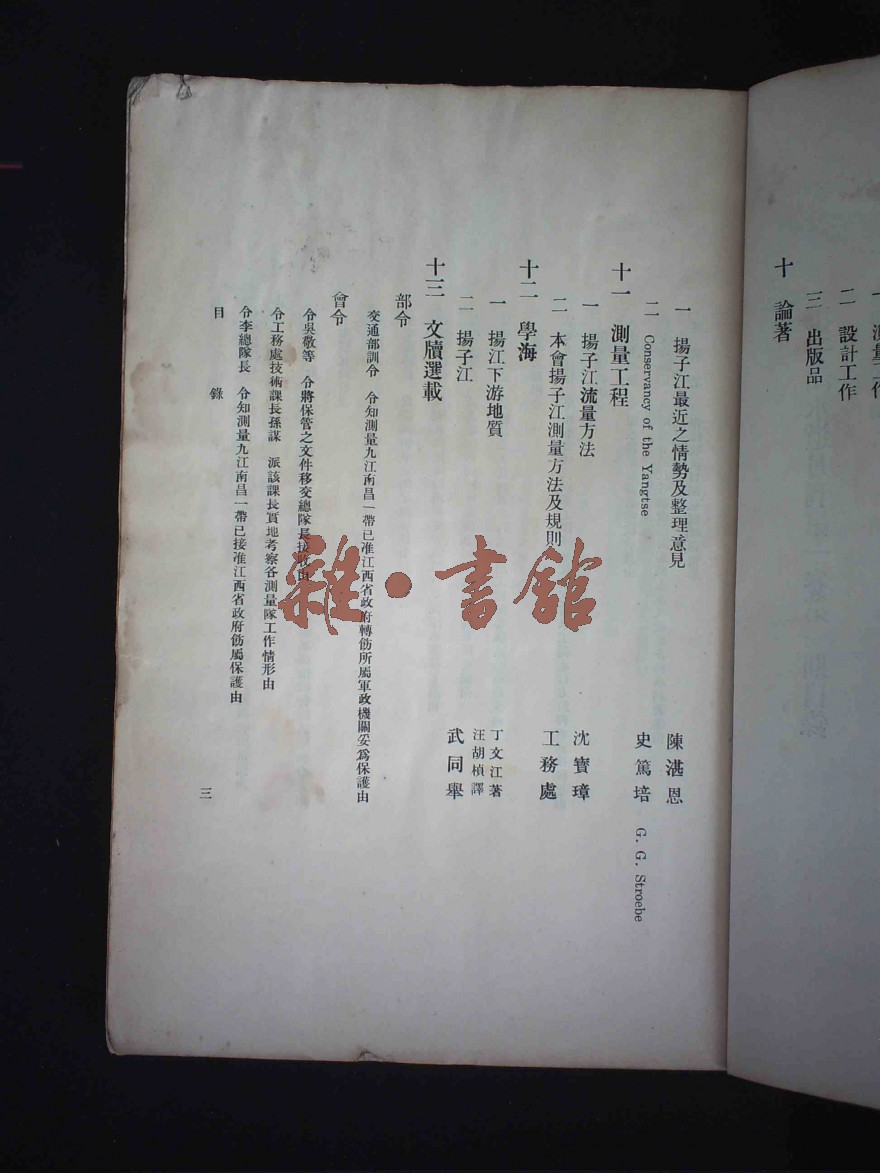 二 設計工作
三 出版品
十 論著
一 揚子江最近之情勢及整理意見 陳湛恩
二 Conservancy of the Yangtse 史篤培 G. G. Stroebe
十一 測量工程
一 揚子江流量方法 沈寶璋
二 本會揚子江測量方法及規則 工務處
十二 學海
一 揚江下游地質 丁文江著 汪胡楨譯
二 揚子江 武同舉
十三 文牘選載
部令
交通部訓令 令知測量九江南昌一帶已准江西省政府轉飭所屬軍政機關妥爲保護由
會令
令吳敬等 令將保管之文件移交總隊長由
令工務處技術課長孫謀 派該課長實地考察各測量隊工作情形由
令李總隊長 令知測量九江南昌一帶已接准江西省政府飭屬保護由
目 錄
三
雜·書館